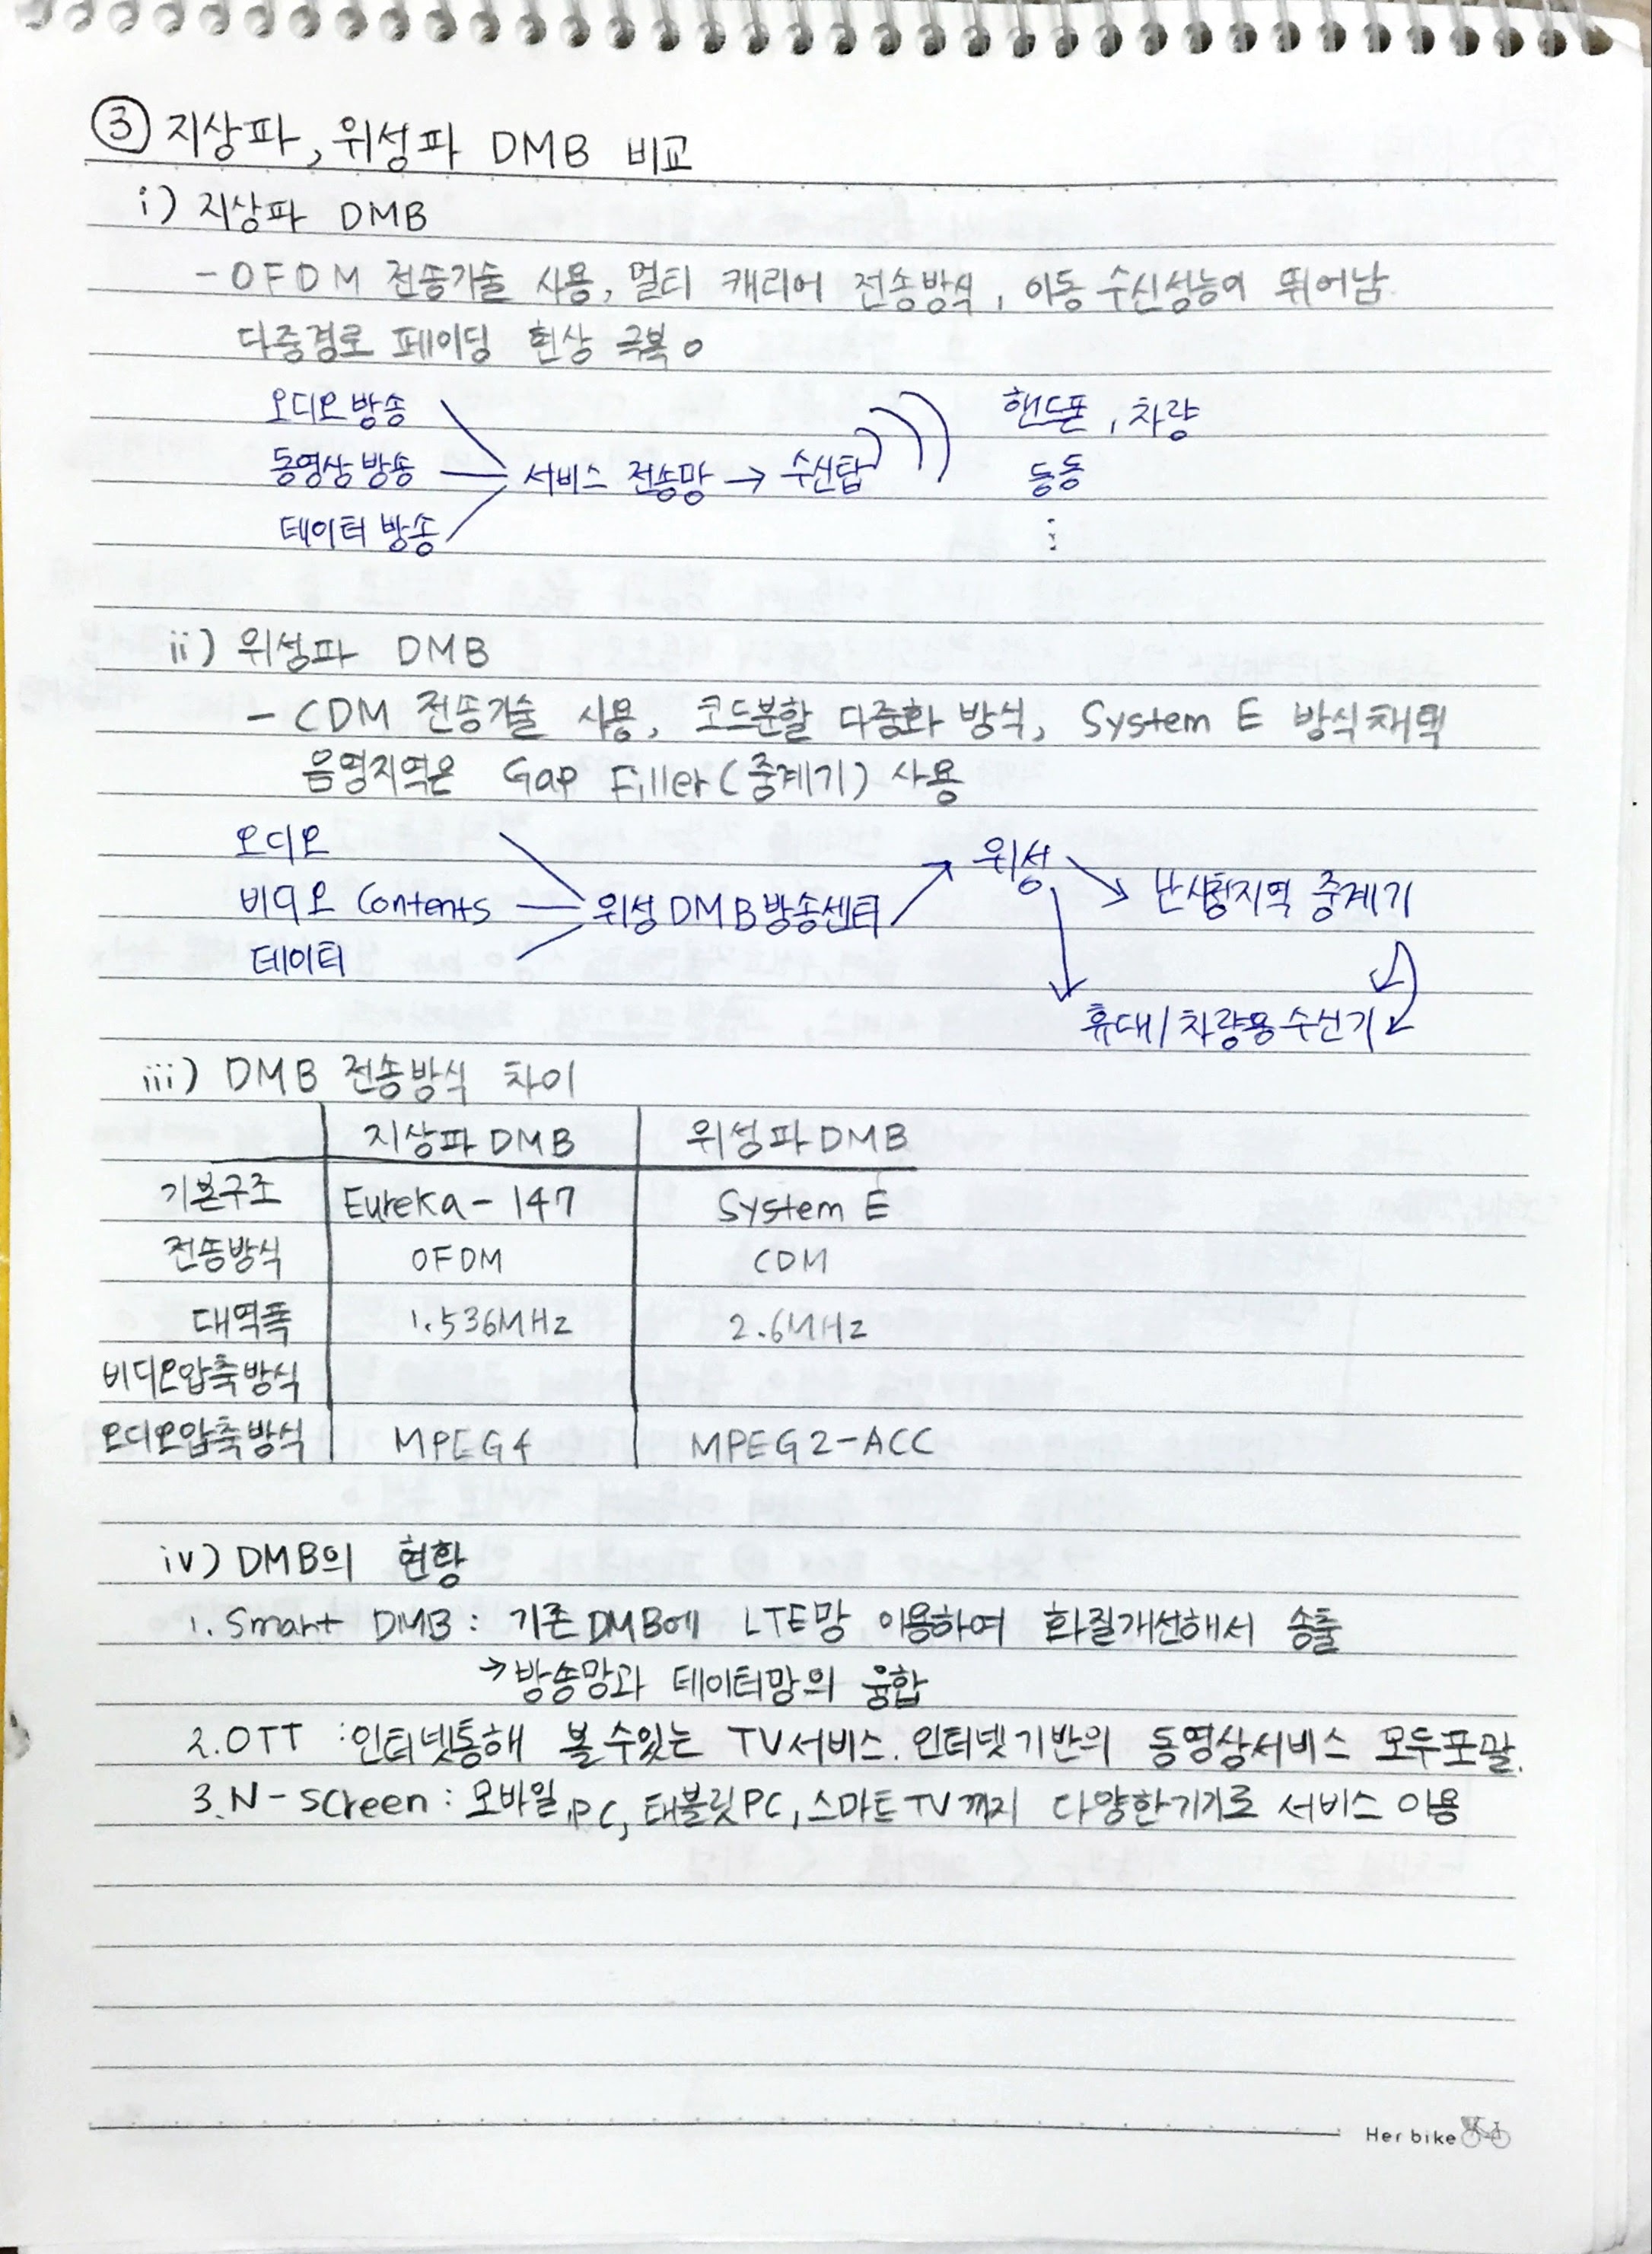 ③ 지상파, 위성파 DMB 비교
i) 지상파 DMB
- OFDM 전송기술 사용, 멀티 캐리어 전송방식, 이동 수신성능이 뛰어남.
다중경로 페이딩 현상 극복 o
오디오 방송
동영상 방송 서비스 전송망 → 수신탑 핸드폰, 차량
데이터 방송 등등
⋮
ii) 위성파 DMB
- CDM 전송기술 사용, 코드분할 다중화 방식, System E 방식채택
음영지역은 Gap Filler(중계기) 사용
오디오
비디오 Contents 위성DMB방송센터 위성 난시청지역 중계기
데이터
휴대/차량용수신기
iii) DMB 전송방식 차이
지상파DMB 위성파DMB
기본구조 Eureka-147 System E
전송방식 OFDM CDM
대역폭 1.536MHz 2.6MHz
비디오압축방식
오디오압축방식 MPEG4 MPEG2-ACC
iv) DMB의 현황
1. Smart DMB : 기존DMB에 LTE망 이용하여 화질개선해서 송출
→방송망과 데이터망의 융합
2.OTT :인터넷통해 볼 수있는 TV서비스. 인터넷기반의 동영상서비스 모두포괄.
3.N-screen : 모바일, PC, 태블릿PC, 스마트TV까지 다양한기기로 서비스 이용
Her bike